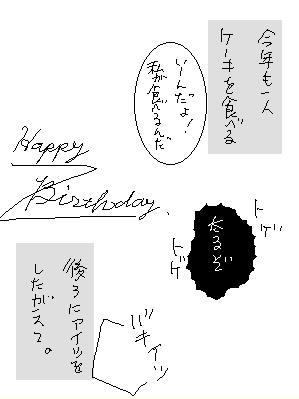 今年も一人
ケーキを食べる
いーんだよ!
私が食べるんだ
Happy
Birthday
トゲ
太るぞ
トゲ
後ろにアイツを
したがえて。
バキィッ